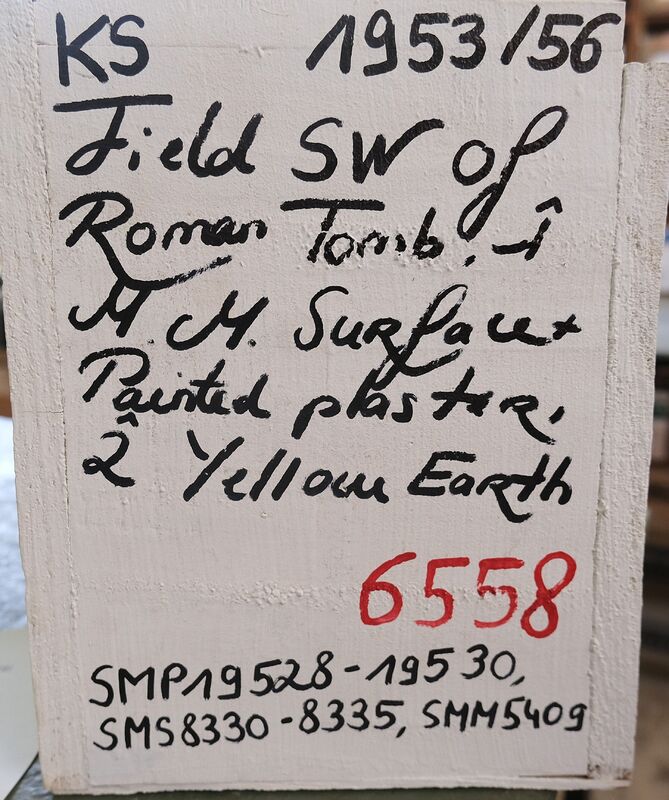 KS 1953/56
Field SW of
Roman Tomb. 1̂
M M. Surface +
Painted plaster,
2̂ Yellow Earth
6558
SMP19528-19530,
SMS8330-8335, SMM5409